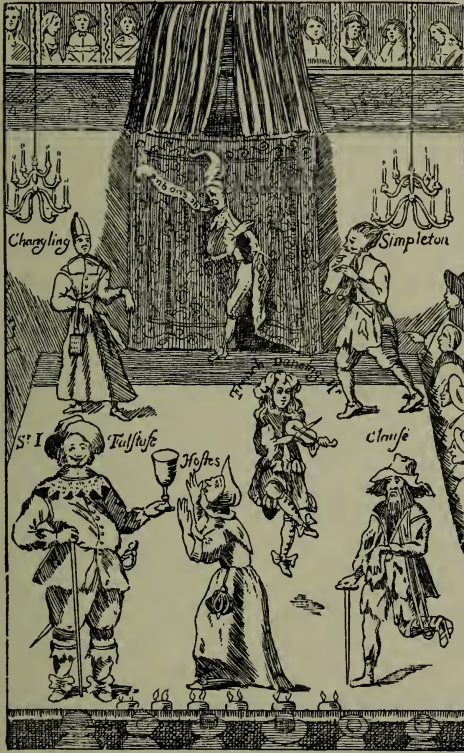 Changling
Simpleton
French Dancing Mr
Sr I Falstafe
Hostes
Clause